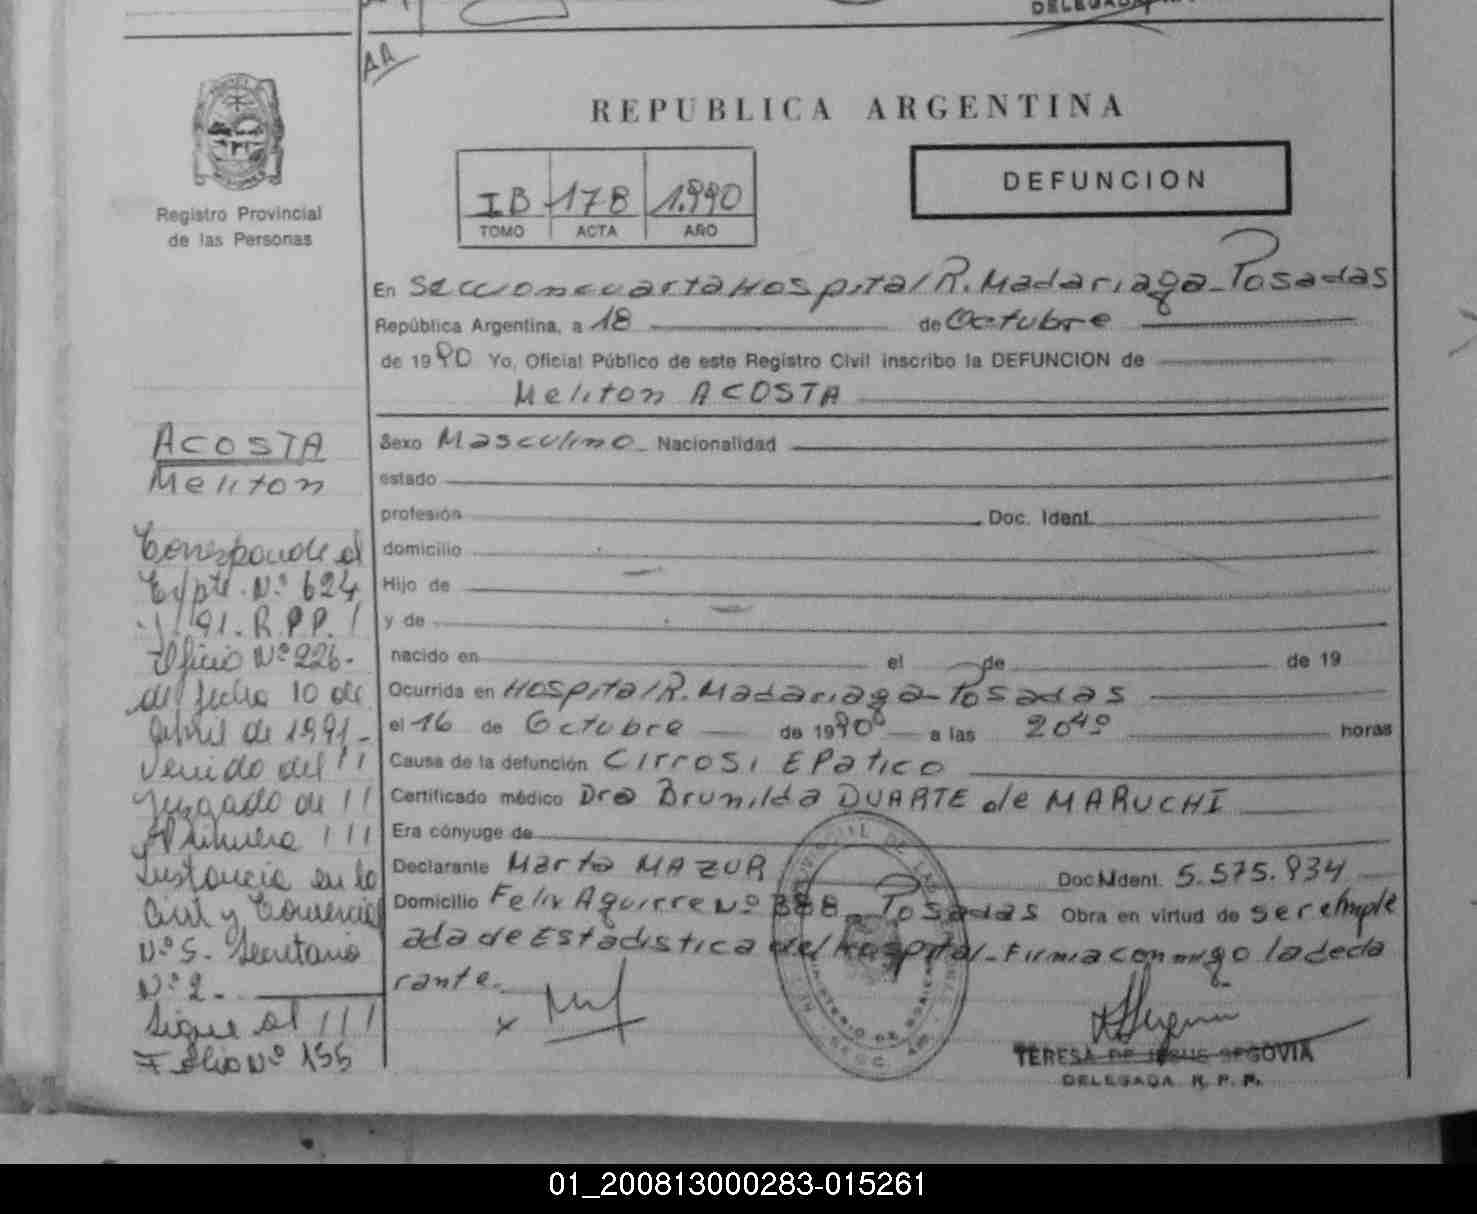 DELEGADA
AA
REPUBLICA ARGENTINA
IB 178 1.990
TOMO ACTA AÑO
DEFUNCION
Registro Provincial
de las Personas
En Seccion cuarta Hospital R. Madariaga - Posadas
República Argentina, a 18 de Octubre
de 1990 Yo, Oficial Público de este Registro Civil inscribo la DEFUNCION de
Meliton ACOSTA
Sexo Masculino - Nacionalidad
estado
profesión Doc. Ident.
domicilio
Hijo de
y de
nacido en el de de 19
Ocurrida en Hospital R. Madariaga - Posadas
el 16 de Octubre de 1990 a las 20 40 horas
Causa de la defunción CIrrosi EPatico
Certificado médico Dra Brunilda DUARTE de MARUCHI
Era cónyuge de
Declarante Marta MAZUR Doc. Ident. 5.575.934
Domicilio Felix Aguirre Nº 388 - Posadas Obra en virtud de ser emple
ada de Estadistica del Hospital - Firma conmigo la decla
rante.
TERESA DE JESUS SEGOVIA
DELEGADA R. P. P.
ACOSTA
Meliton
Corresponde al
Expte. Nº 624
/91. R.P.P. /
Oficio Nº 226 -
de fecha 10 de
Abril de 1991 -
venido del //
Juzgado de //
Primera ///
Instancia en lo
Civil y Comercial
Nº 5 - Secretaria
Nº 2 -
Sigue al ///
Folio Nº 155
01_200813000283-015261